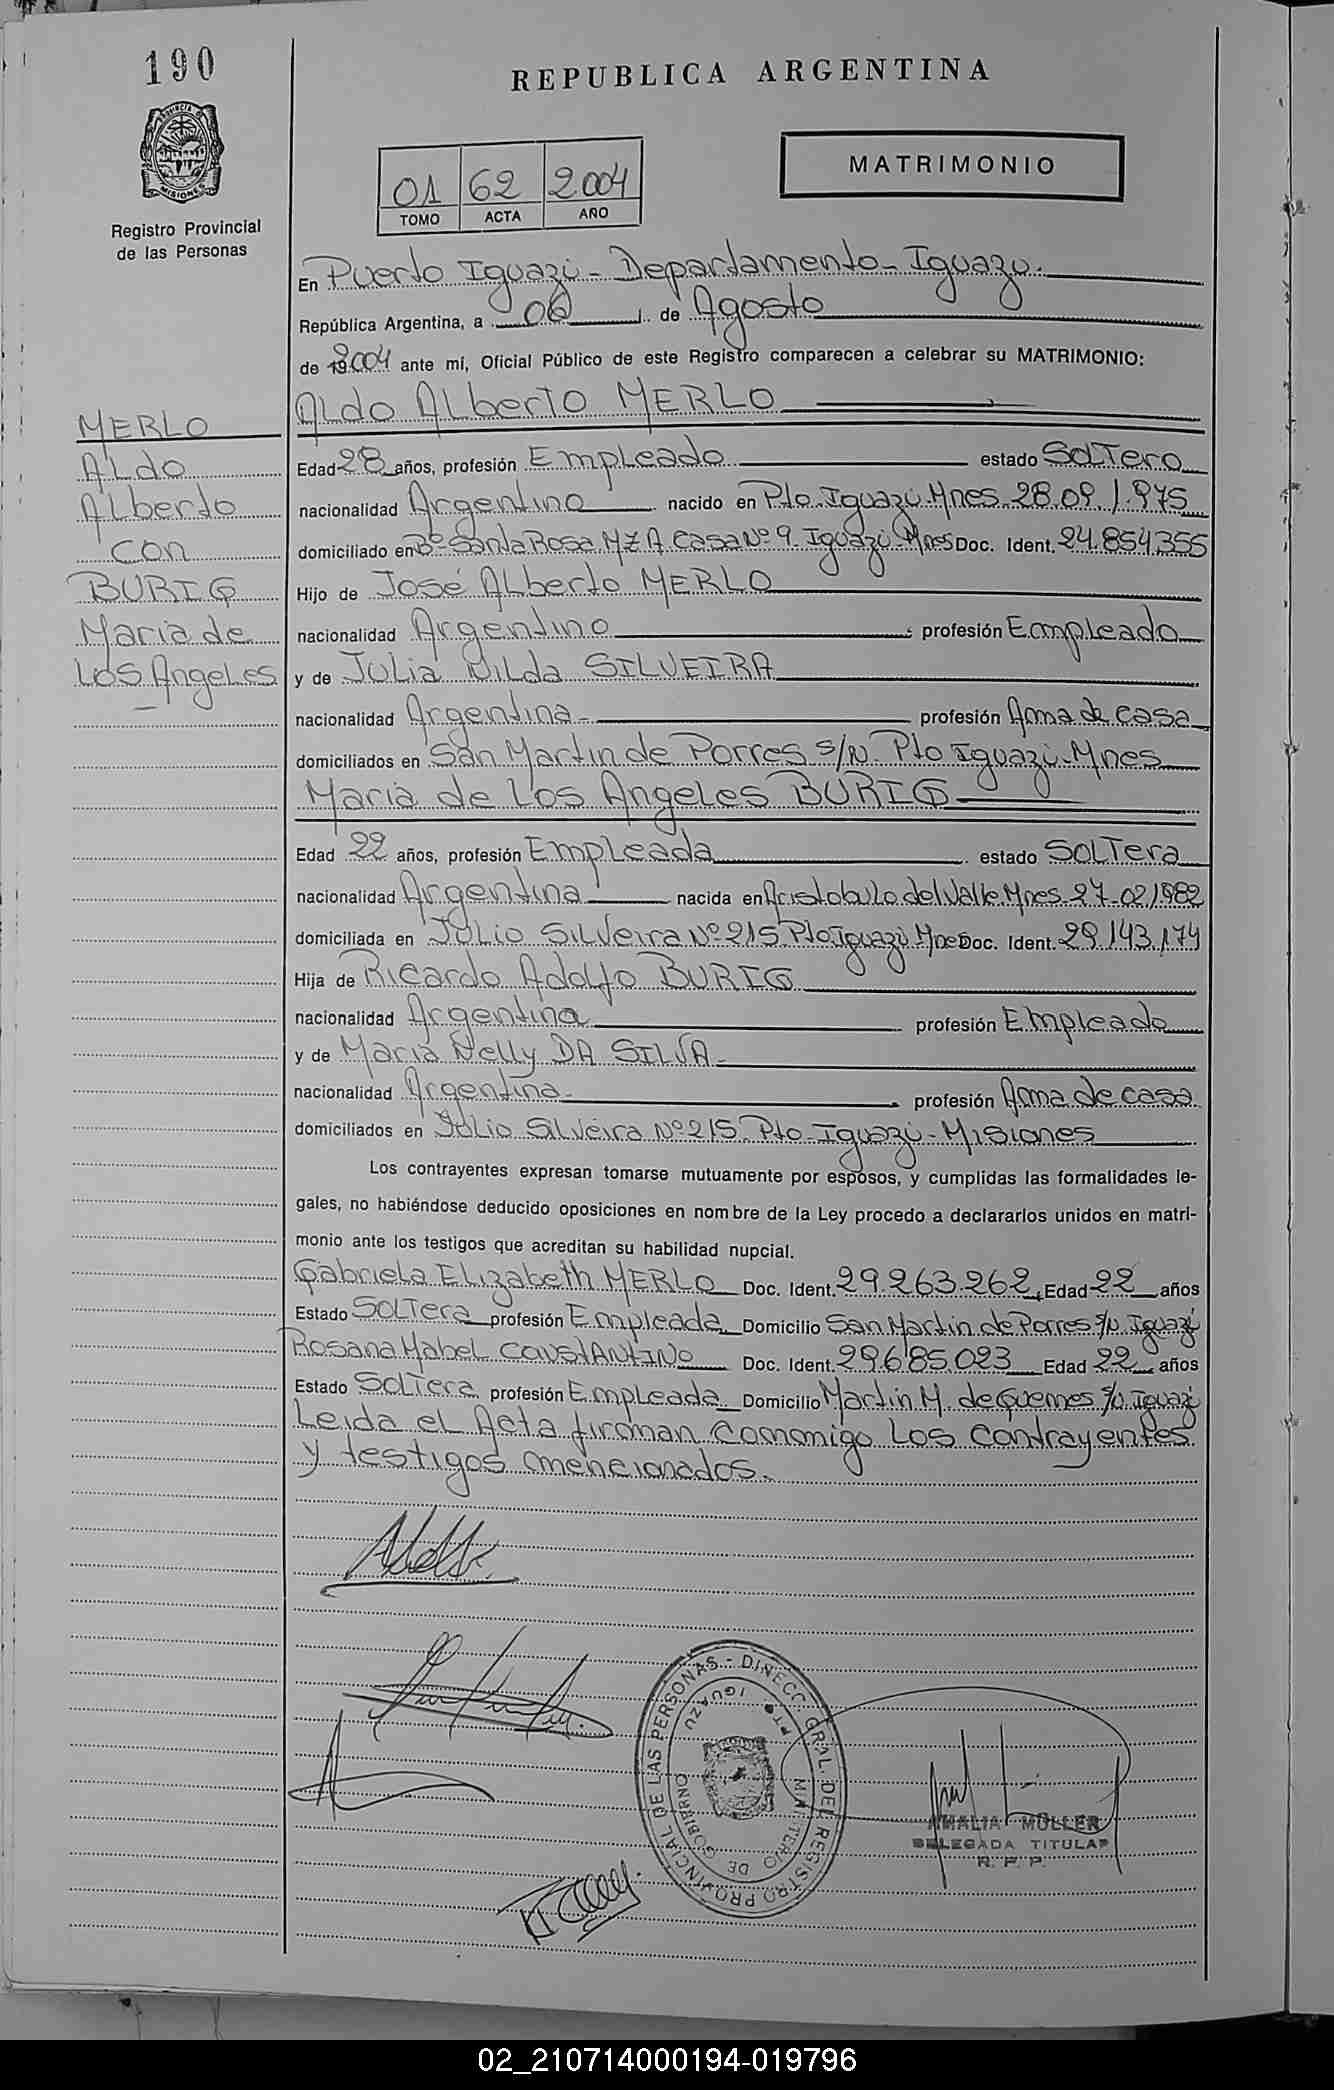 190
REPUBLICA ARGENTINA
PROVINCIA DE MISIONES
Registro Provincial
de las Personas
01 62 2004
TOMO ACTA AÑO
MATRIMONIO
En Puerto Iguazú - Departamento - Iguazú.
República Argentina, a 06 de Agosto
de 2004 ante mí, Oficial Público de este Registro comparecen a celebrar su MATRIMONIO:
Aldo Alberto MERLO
MERLO
Aldo
Alberto
con
BURIG
Maria de
Los Angeles
Edad 28 años, profesión Empleado estado Soltero
nacionalidad Argentino nacido en Pto. Iguazú Mnes. 28.09.1975
domiciliado en Bº Santa Rosa Mz A Casa Nº 9 Iguazú Mnes Doc. Ident. 24.854.355
Hijo de José Alberto MERLO
nacionalidad Argentino profesión Empleado
y de Julia Nilda SILVEIRA
nacionalidad Argentina profesión Ama de casa
domiciliados en San Martin de Porres s/N. Pto Iguazú - Mnes
Maria de Los Angeles BURIG
Edad 22 años, profesión Empleada estado Soltera
nacionalidad Argentina nacida en Aristobulo del Valle Mnes. 27-02-1982
domiciliada en Julio Silveira Nº 215 Pto Iguazú Mnes Doc. Ident. 29.143.174
Hija de Ricardo Adolfo BURIG
nacionalidad Argentina profesión Empleado
y de Maria Nelly DA SILVA
nacionalidad Argentina profesión Ama de casa
domiciliados en Julio Silveira Nº 215 Pto - Iguazú - Misiones
Los contrayentes expresan tomarse mutuamente por esposos, y cumplidas las formalidades le-
gales, no habiéndose deducido oposiciones en nombre de la Ley procedo a declararlos unidos en matri-
monio ante los testigos que acreditan su habilidad nupcial.
Gabriela Elizabeth MERLO Doc. Ident. 29.263.262 Edad 22 años
Estado Soltera profesión Empleada Domicilio San Martin de Porres s/N. Iguazú
Rosana Mabel CONSTANTINO Doc. Ident. 29.685.023 Edad 22 años
Estado Soltera profesión Empleada Domicilio Martin M. de Guemes s/N. Iguazú
Leida el Acta firman conmigo Los Contrayentes
y testigos mencionados.
DIRECC. GRAL. DEL REGISTRO PROVINCIAL DE LAS PERSONAS
PTO IGUAZU
DE GOBIERNO
AMALIA MÜLLER
DELEGADA TITULAR
R. P. P.
02_210714000194-019796